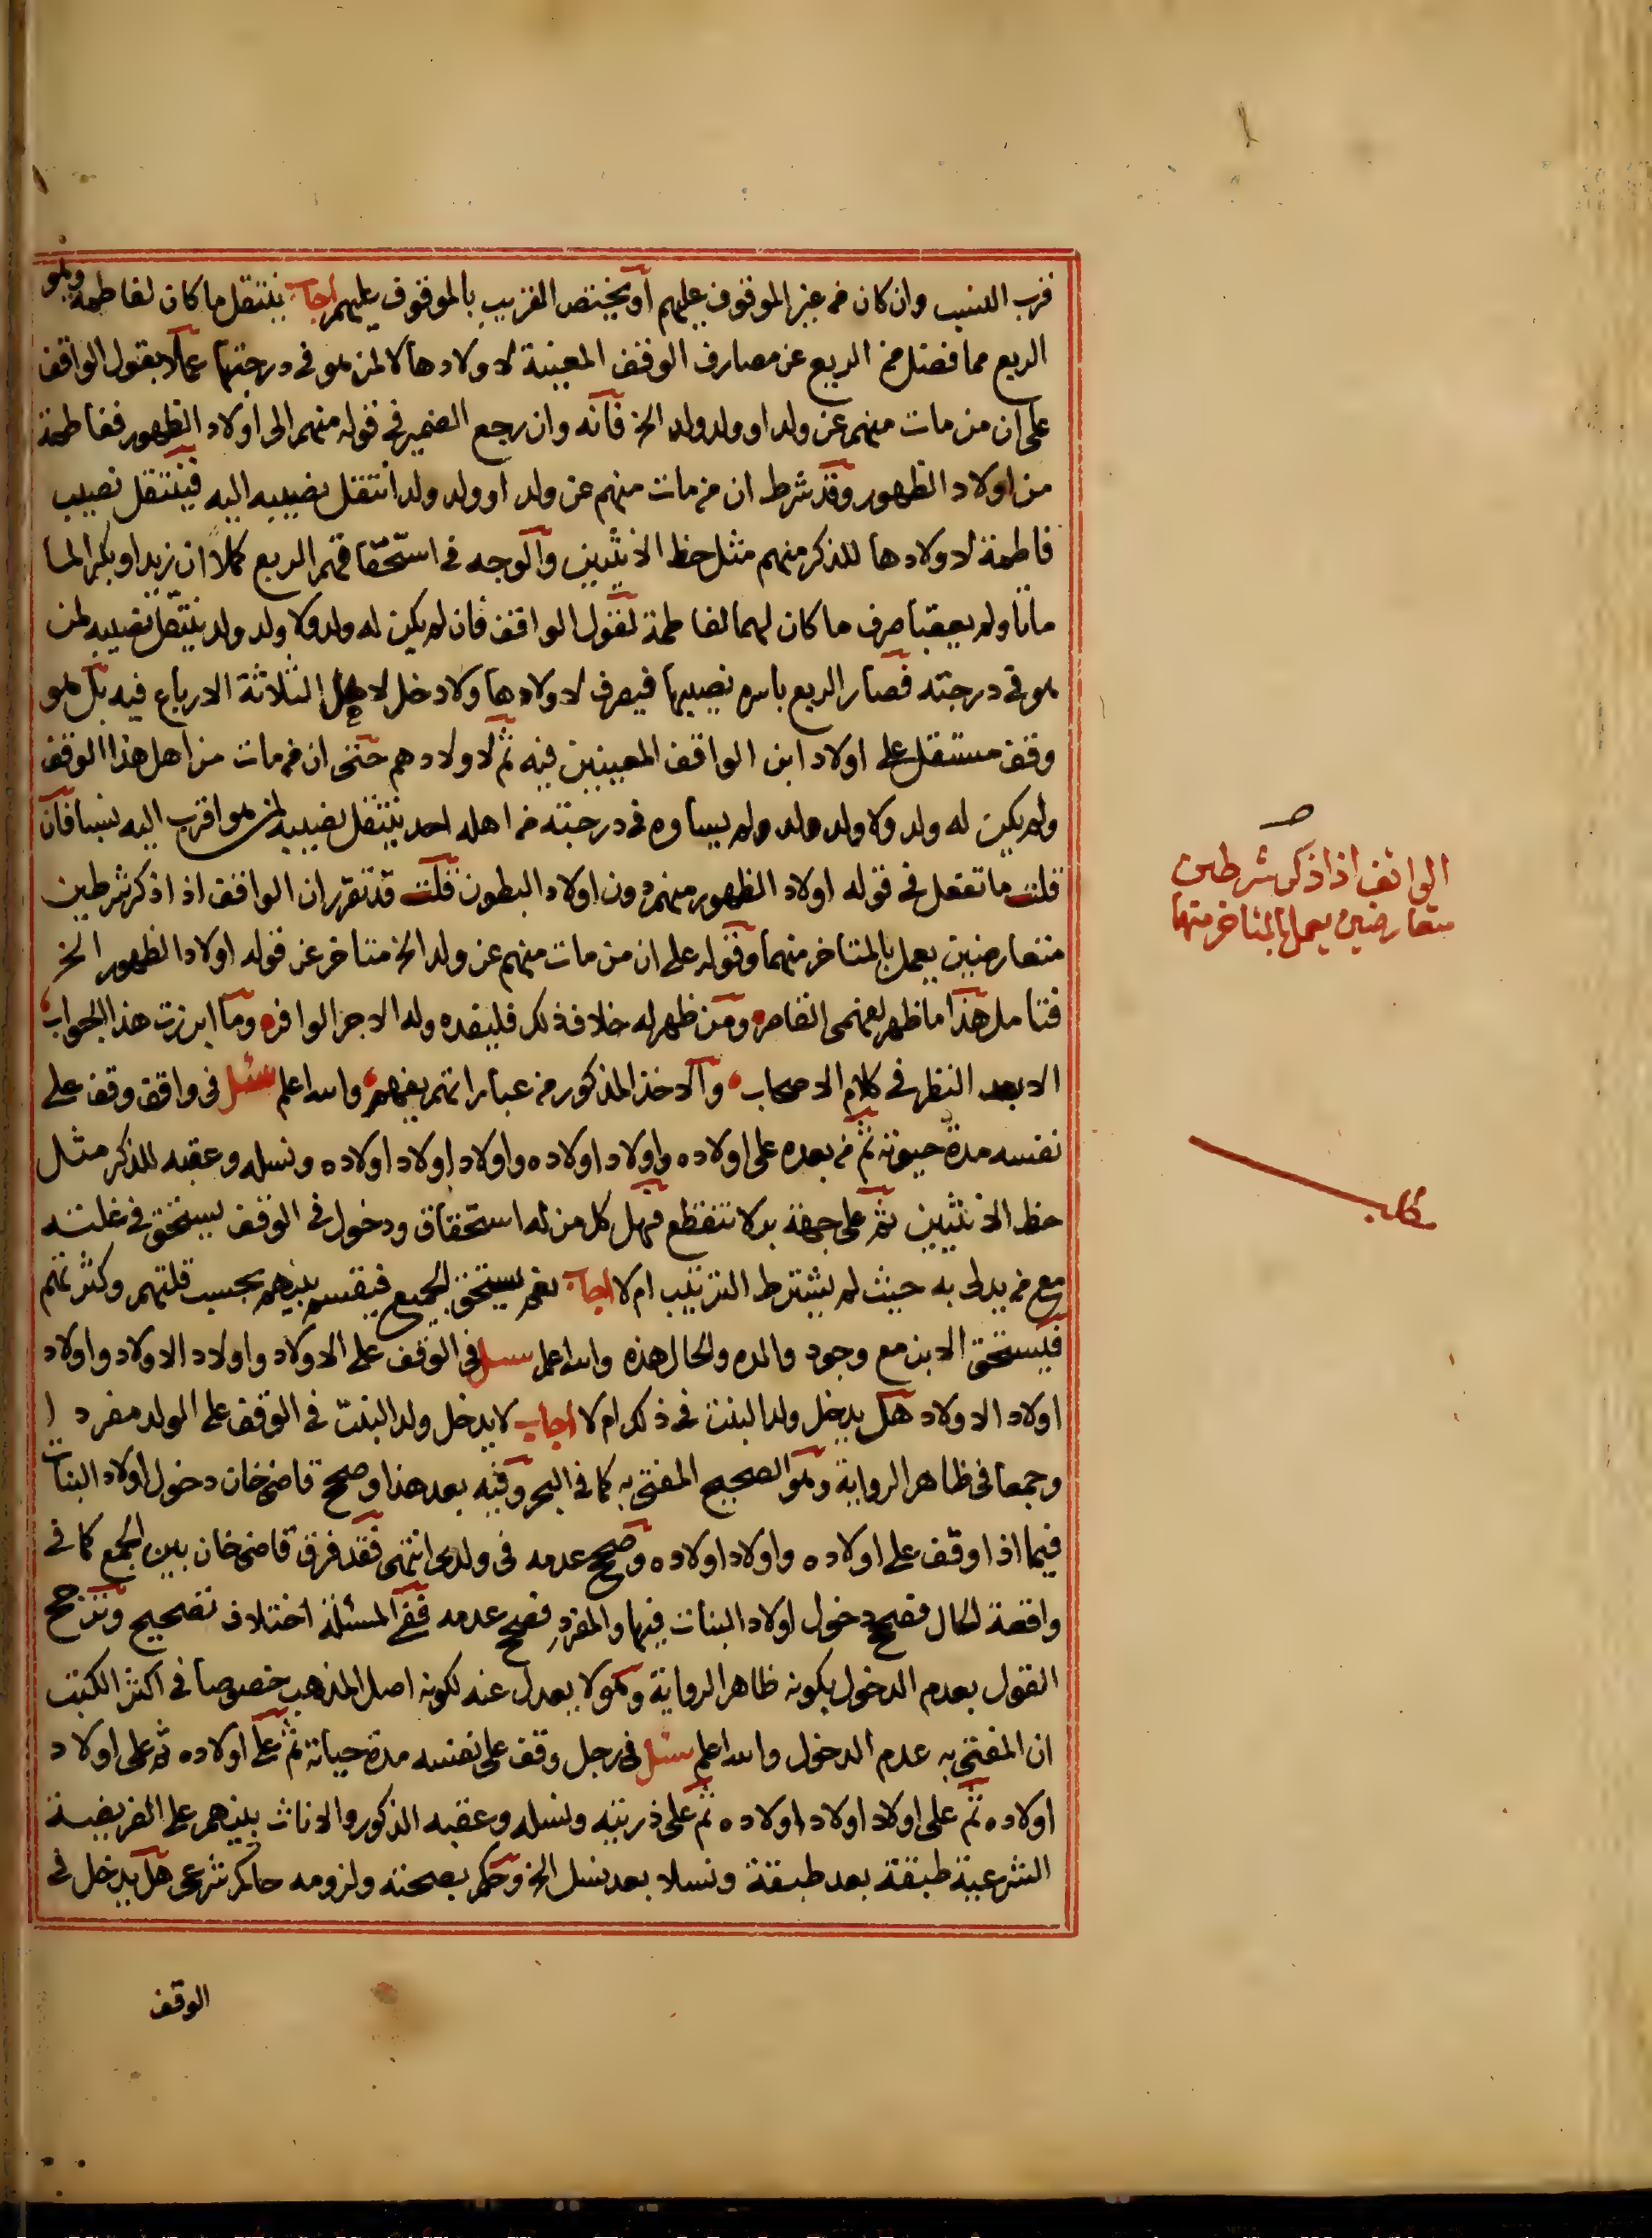 قرب النسب وان كان من غير الموقوف عليهم او يختص القريب بالموقوف عليهم اجاب ينتقل ما كان لفاطمة وهو
الربع مما فضل من الريع عن مصارف الوقف المعينة لاولادها لا لمن هو في درجتها عملا بقول الواقف
على ان من مات منهم عن ولد او ولد ولد الخ فانه وان رجع الضمير في قوله منهم الى اولاد الظهور ففاطمة
من اولاد الظهور وقد شرط ان من مات منهم عن ولد او ولد ولد انتقل نصيبه اليه فينتقل نصيب
فاطمة لاولادها للذكر منهم مثل حظ الانثيين والوجه في استحقاقهم الربع كملا ان زيدا وبكرا لما
ماتا ولم يعقبا صرف ما كان لهما لفاطمة لقول الواقف فان لم يكن له ولد ولا ولد ولد ينتقل نصيبه لمن
هو في درجته فصار الربع باسره نصيبها فيصرف لاولادها ولا دخل لاهل الثلاثة الارباع فيه بل هو
وقف مستقل على اولاد ابن الواقف المعينين فيه ثم لاولادهم حتى ان من مات من اهل هذا الوقف
ولم يكن له ولد ولا ولد ولد ولم يساوه في درجته من اهله احد ينتقل نصيبه لمن هو اقرب اليه نسبا فان
قلت ما تفعل في قوله اولاد الظهور منهم دون اولاد البطون قلت قد تقرر ان الواقف اذا ذكر شرطين
متعارضين يعمل بالمتاخر منهما وقوله على ان من مات منهم عن ولد الخ متاخر عن قوله اولاد الظهور الخ
فتامل هذا ما ظهر لفهمى القاصر ومن ظهر له خلاف ذلك فليفده وله الاجر الوافر وما ابرزت هذا الجواب
الا بعد النظر في كلام الاصحاب والاخذ المذكور من عباراتهم يفهم والله اعلم سئل في واقف وقف على
نفسه مدة حيوته ثم من بعده على اولاده واولاد اولاده واولاد اولاد اولاده ونسله وعقبه للذكر مثل
حظ الانثيين ثم على جهة بر لا تنقطع فهل كل من له استحقاق ودخول في الوقف يستحق في غلته
مع من يدلى به حيث لم يشترط الترتيب ام لا اجاب نعم يستحق الجميع فيقسم بينهم بحسب قلتهم وكثرتهم
فيستحق الابن مع وجود والده والحال هذه والله اعلم سئل في الوقف على الاولاد واولاد الاولاد واولاد
اولاد الاولاد هل يدخل ولد البنت في ذلك ام لا اجاب لا يدخل ولد البنت في الوقف على الولد مفردا
وجمعا في ظاهر الرواية وهو الصحيح المفتى به كما في البحر وفيه بعد هذا وصحح قاضى خان دخول اولاد البنات
فيما اذا وقف على اولاده واولاد اولاده وصحح عدمه في ولدى انتهى فقد فرق قاضى خان بين الجمع كما في
واقعة الحال فصحح دخول اولاد البنات فيها والمفرد فصحح عدمه ففي المسئلة اختلاف تصحيح وترجح
القول بعدم الدخول بكونه ظاهر الرواية وهو لا يعدل عنه لكونه اصل المذهب خصوصا في اكثر الكتب
ان المفتى به عدم الدخول والله اعلم سئل في رجل وقف على نفسه مدة حياته ثم على اولاده ثم على اولاد
اولاده ثم على اولاد اولاد اولاده ثم على ذريته ونسله وعقبه الذكور والاناث بينهم على الفريضة
الشرعية طبقة بعد طبقة ونسلا بعد نسل الخ وحكم بصحته ولزومه حاكم شرعى هل يدخل في
الوقف
الواقف اذا ذكر شرطين
متعارضين يعمل بالمتاخر منهما